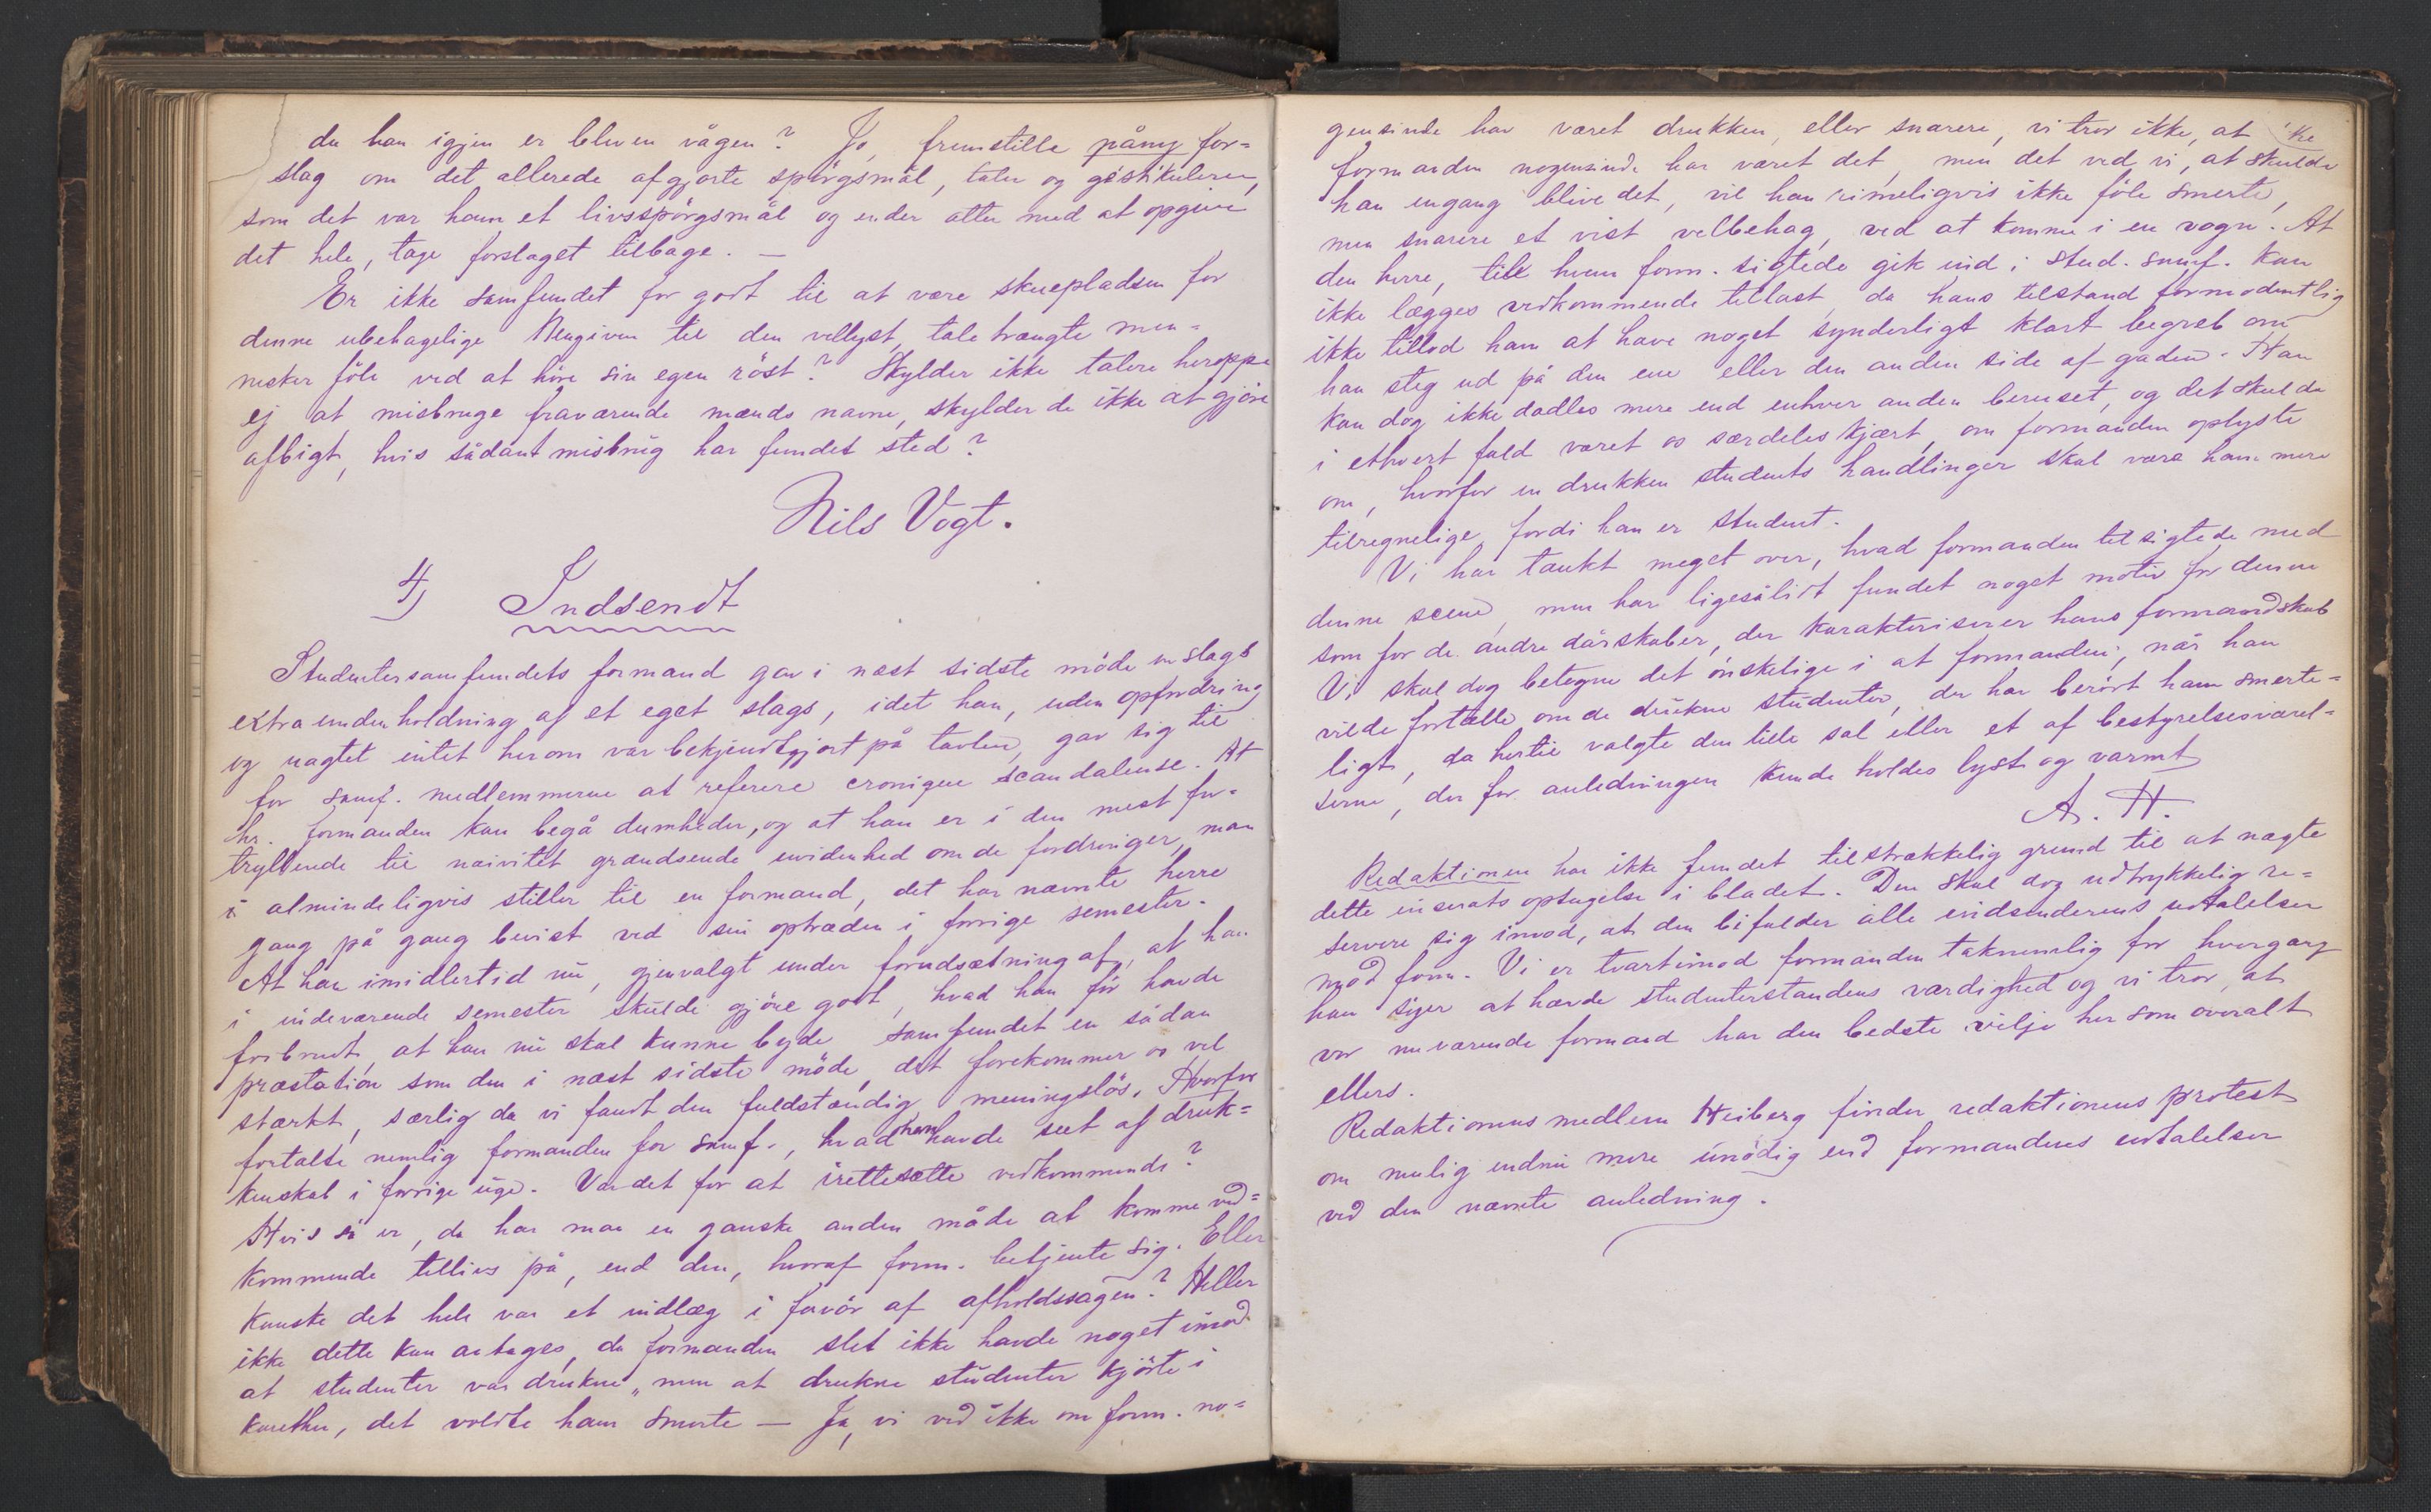 da han igjen er bleven vågen? Jo, fremstille påny for=
slag om det allerede afgjorte spörgsmål, taler og gestikulerer,
som det var ham et livsspörgsmål og ender atter med at opgive
det hele, tage forslaget tilbage. —
Er ikke samfundet for godt til at være skuepladsen for
denne ubehagelige hengiven til den vellyst, taletrængte men=
nesker föle ved at höre sin egen röst? Skylder ikke talere heroppe
ej at misbruge fraværende mænds navne, skylder de ikke at gjöre
afbigt, hvis sådant misbrug har fundet sted?
Nils Vogt.
4) Indsendt
Studentersamfundets formand gav i næst sidste möde en slags
extraunderholdning af et eget slags, idet han, uden opfordring
og uagtet intet herom var bekjendtgjort på tavlen, gav sig til
for samf. medlemmerne at referere cronique scandaleuse. At
hr. formanden kan begå dumheder, og at han er i den mest for=
tryllende til naivitet grændsende uvidenhed om de fordringer, man
i almindeligvis stiller til en formand, det har nævnte herre
gang på gang bevist ved sin optræden i forrige semester.
At han imidlertid nu, gjenvalgt under forudsætning af, at han
i indeværende semester skulde gjöre godt, hvad han för havde
forbrudt, at han nu skal kunne byde samfundet en sådan
præstation som den i næst sidste möde, det forekommer os vel
stærkt, særlig da vi fandt den fuldstændig meningslös. Hvorfor
fortalte nemlig formanden for samf., hvad han havde seet af druk=
kenskab i forrige uge. Var det for at irettesætte vedkommende?
Hvis så er, da har man en ganske anden måde at komme ved=
kommende tillivs på, end den, hvoraf form. betjente sig. Eller
kanske det hele var et indlæg i favör af afholdssagen? Heller
ikke dette kan antages, da formanden slet ikke havde noget imod
at studenter var drukne, „men at drukne studenter kjörte i
karether, det voldte ham smerte — Ja, vi ved ikke om form. no=
gensinde har været drukken, eller snarere, vi tror ikke, at ikke
formanden nogensinde har været det, men det ved vi, at skulde
han engang blive det, vil han rimeligvis ikke föle smerte,
men snarere et vist velbehag, ved at komme i en vogn. At
den herre, till hvem form. sigtede gik ind i stud. samf. kan
ikke lægges vedkommende tillast, da hans tilstand formodentlig
ikke tillod ham at have noget synderligt klart begreb om
han steg ud på den ene eller den anden side af gaden. Han
kan dog ikke dadles mere end enhver anden beruset, og det skulde
i ethvert fald været os særdeles kjært, om formanden oplyste
om, hvorfor en drukken students handlinger skal være ham mere
tilregnelige, fordi han er student.
Vi har tænkt meget over, hvad formanden tilsigtede med
denne scene, men har ligesålidt fundet noget motiv for denne
som for de andre dårskaber, der karakteriserer hans formandskab
Vi skal dog betegne det önskelige i at formanden, når han
vilde fortælle om de drukne studenter, der har berört ham smerte=
ligt, da hertil valgte den lille sal eller et af bestyrelsesværel=
serne, der for anledningen kunde holdes lyst og varmt
A. H.
Redaktionen har ikke fundet tilstrækkelig grund til at nægte
dette inserats optagelse i bladet. Den skal dog udtrykkelig re=
servere sig imod, at den bifalder alle indsenderens udtalelser
mod form. Vi er tvartimod formanden taknemlig for hvergang
han siger at hævde studenterstandens værdighed og vi tror, at
vor nuværende formand har den bedste vilje her som overalt
ellers.
Redaktionens medlem Heiberg finder redaktionens protest
om mulig endnu mere unödig end formandens udtalelser
ved den nævnte anledning.